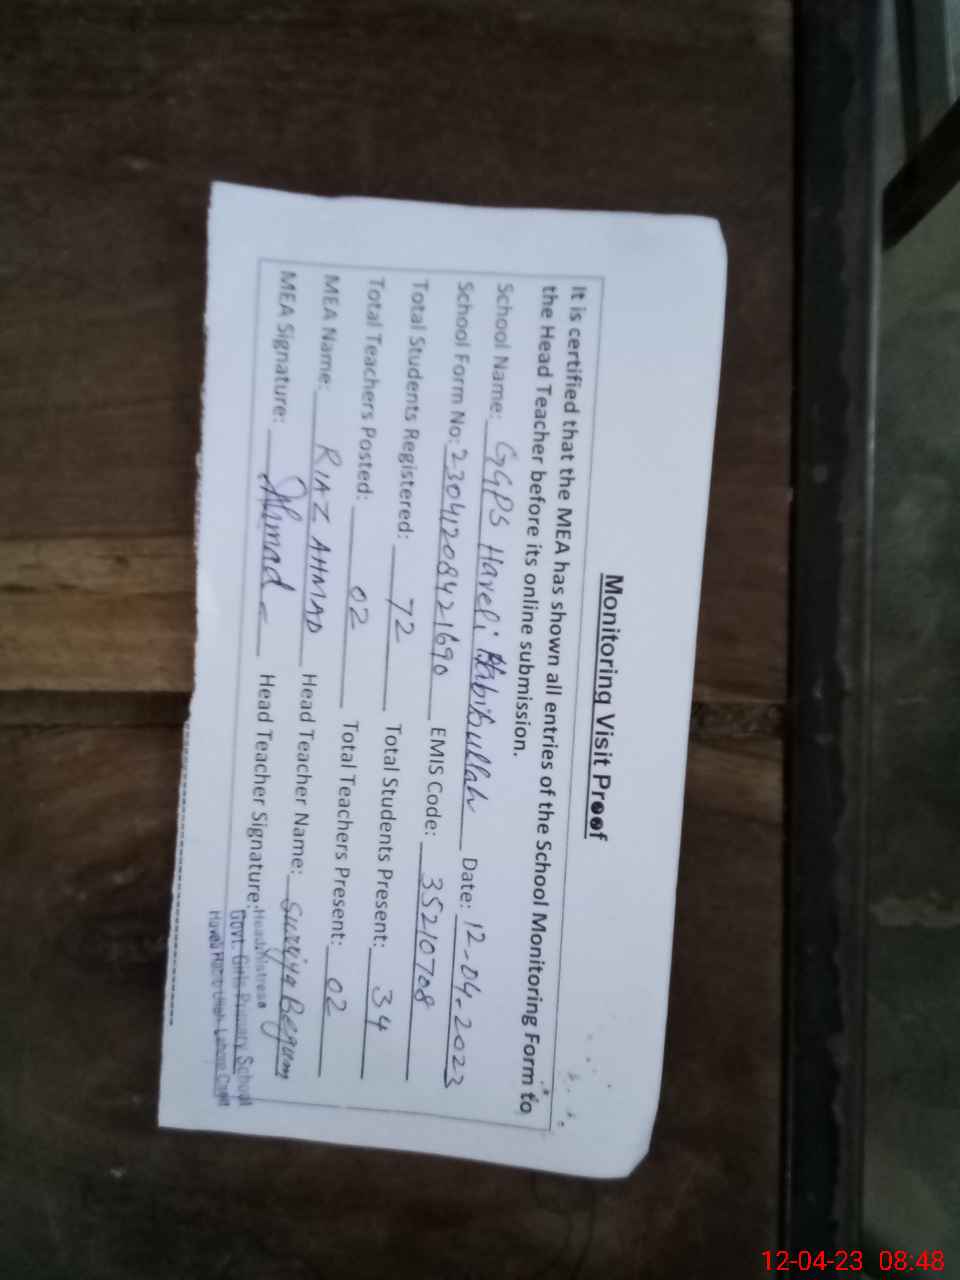 Monitoring Visit Proof
It is certified that the MEA has shown all entries of the School Monitoring Form to
the Head Teacher before its online submission.
School Name: GGPS Haveli Habibullah Date: 12-04-2023
School Form No: 23041208421690 EMIS Code: 35210708
Total Students Registered: 72 Total Students Present: 34
Total Teachers Posted: 02 Total Teachers Present: 02
MEA Name: RIAZ AHMAD Head Teacher Name: Surriya Begum
MEA Signature: Ahmad Head Teacher Signature:
Headmistress
Govt. Girls Primary School
Lahore Cantt
12-04-23 08:48